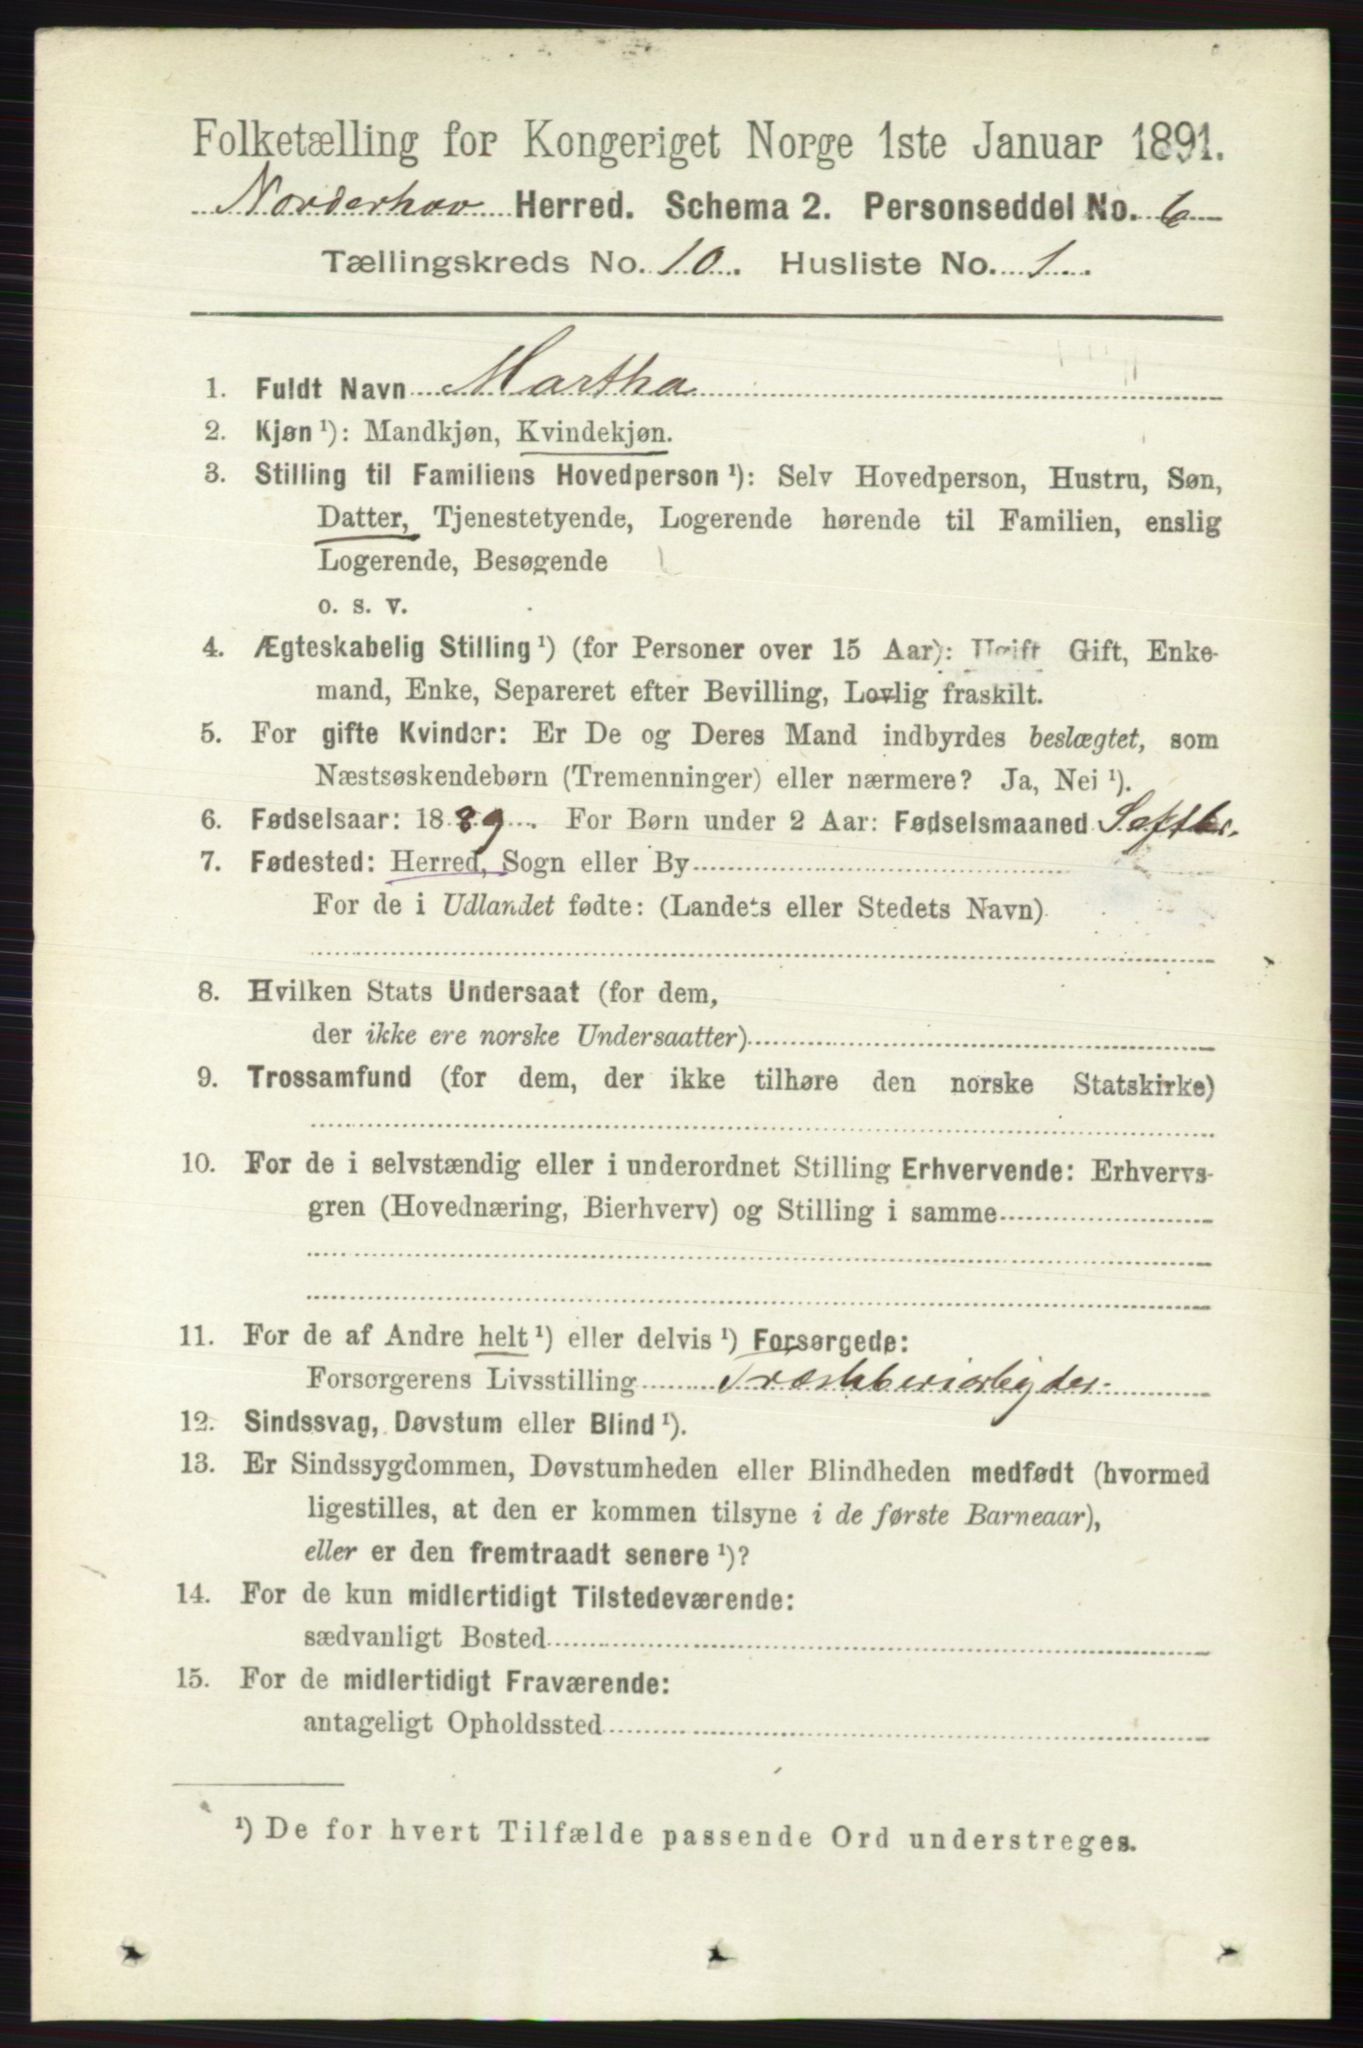 Folketælling for Kongeriget Norge 1ste Januar 1891.
Norderhov Herred. Schema 2. Personseddel No. 6
Tællingskreds No. 10. Husliste No. 1.
1. Fuldt Navn Martha
2. Kjøn ¹): Mandkjøn, Kvindekjøn.
3. Stilling til Familiens Hovedperson ¹): Selv Hovedperson, Hustru, Søn,
Datter, Tjenestetyende, Logerende hørende til Familien, enslig
Logerende, Besøgende
o. s. v.
4. Ægteskabelig Stilling ¹) (for Personer over 15 Aar): Ugift Gift, Enke-
mand, Enke, Separeret efter Bevilling, Lovlig fraskilt.
5. For gifte Kvinder: Er De og Deres Mand indbyrdes beslægtet, som
Næstsøskendebørn (Tremenninger) eller nærmere? Ja, Nei ¹).
6. Fødselsaar: 1889. For Børn under 2 Aar: Fødselsmaaned Septbr.
7. Fødested: Herred, Sogn eller By
For de i Udlandet fødte: (Landets eller Stedets Navn)
8. Hvilken Stats Undersaat (for dem,
der ikke ere norske Undersaatter)
9. Trossamfund (for dem, der ikke tilhøre den norske Statskirke)
10. For de i selvstændig eller i underordnet Stilling Erhvervende: Erhvervs-
gren (Hovednæring, Bierhverv) og Stilling i samme
11. For de af Andre helt ¹) eller delvis ¹) Forsørgede:
Forsørgerens Livsstilling
12. Sindssvag, Døvstum eller Blind ¹).
13. Er Sindssygdommen, Døvstumheden eller Blindheden medfødt (hvormed
ligestilles, at den er kommen tilsyne i de første Barneaar),
eller er den fremtraadt senere ¹)?
14. For de kun midlertidigt Tilstedeværende:
sædvanligt Bosted
15. For de midlertidigt Fraværende:
antageligt Opholdssted
¹) De for hvert Tilfælde passende Ord understreges.